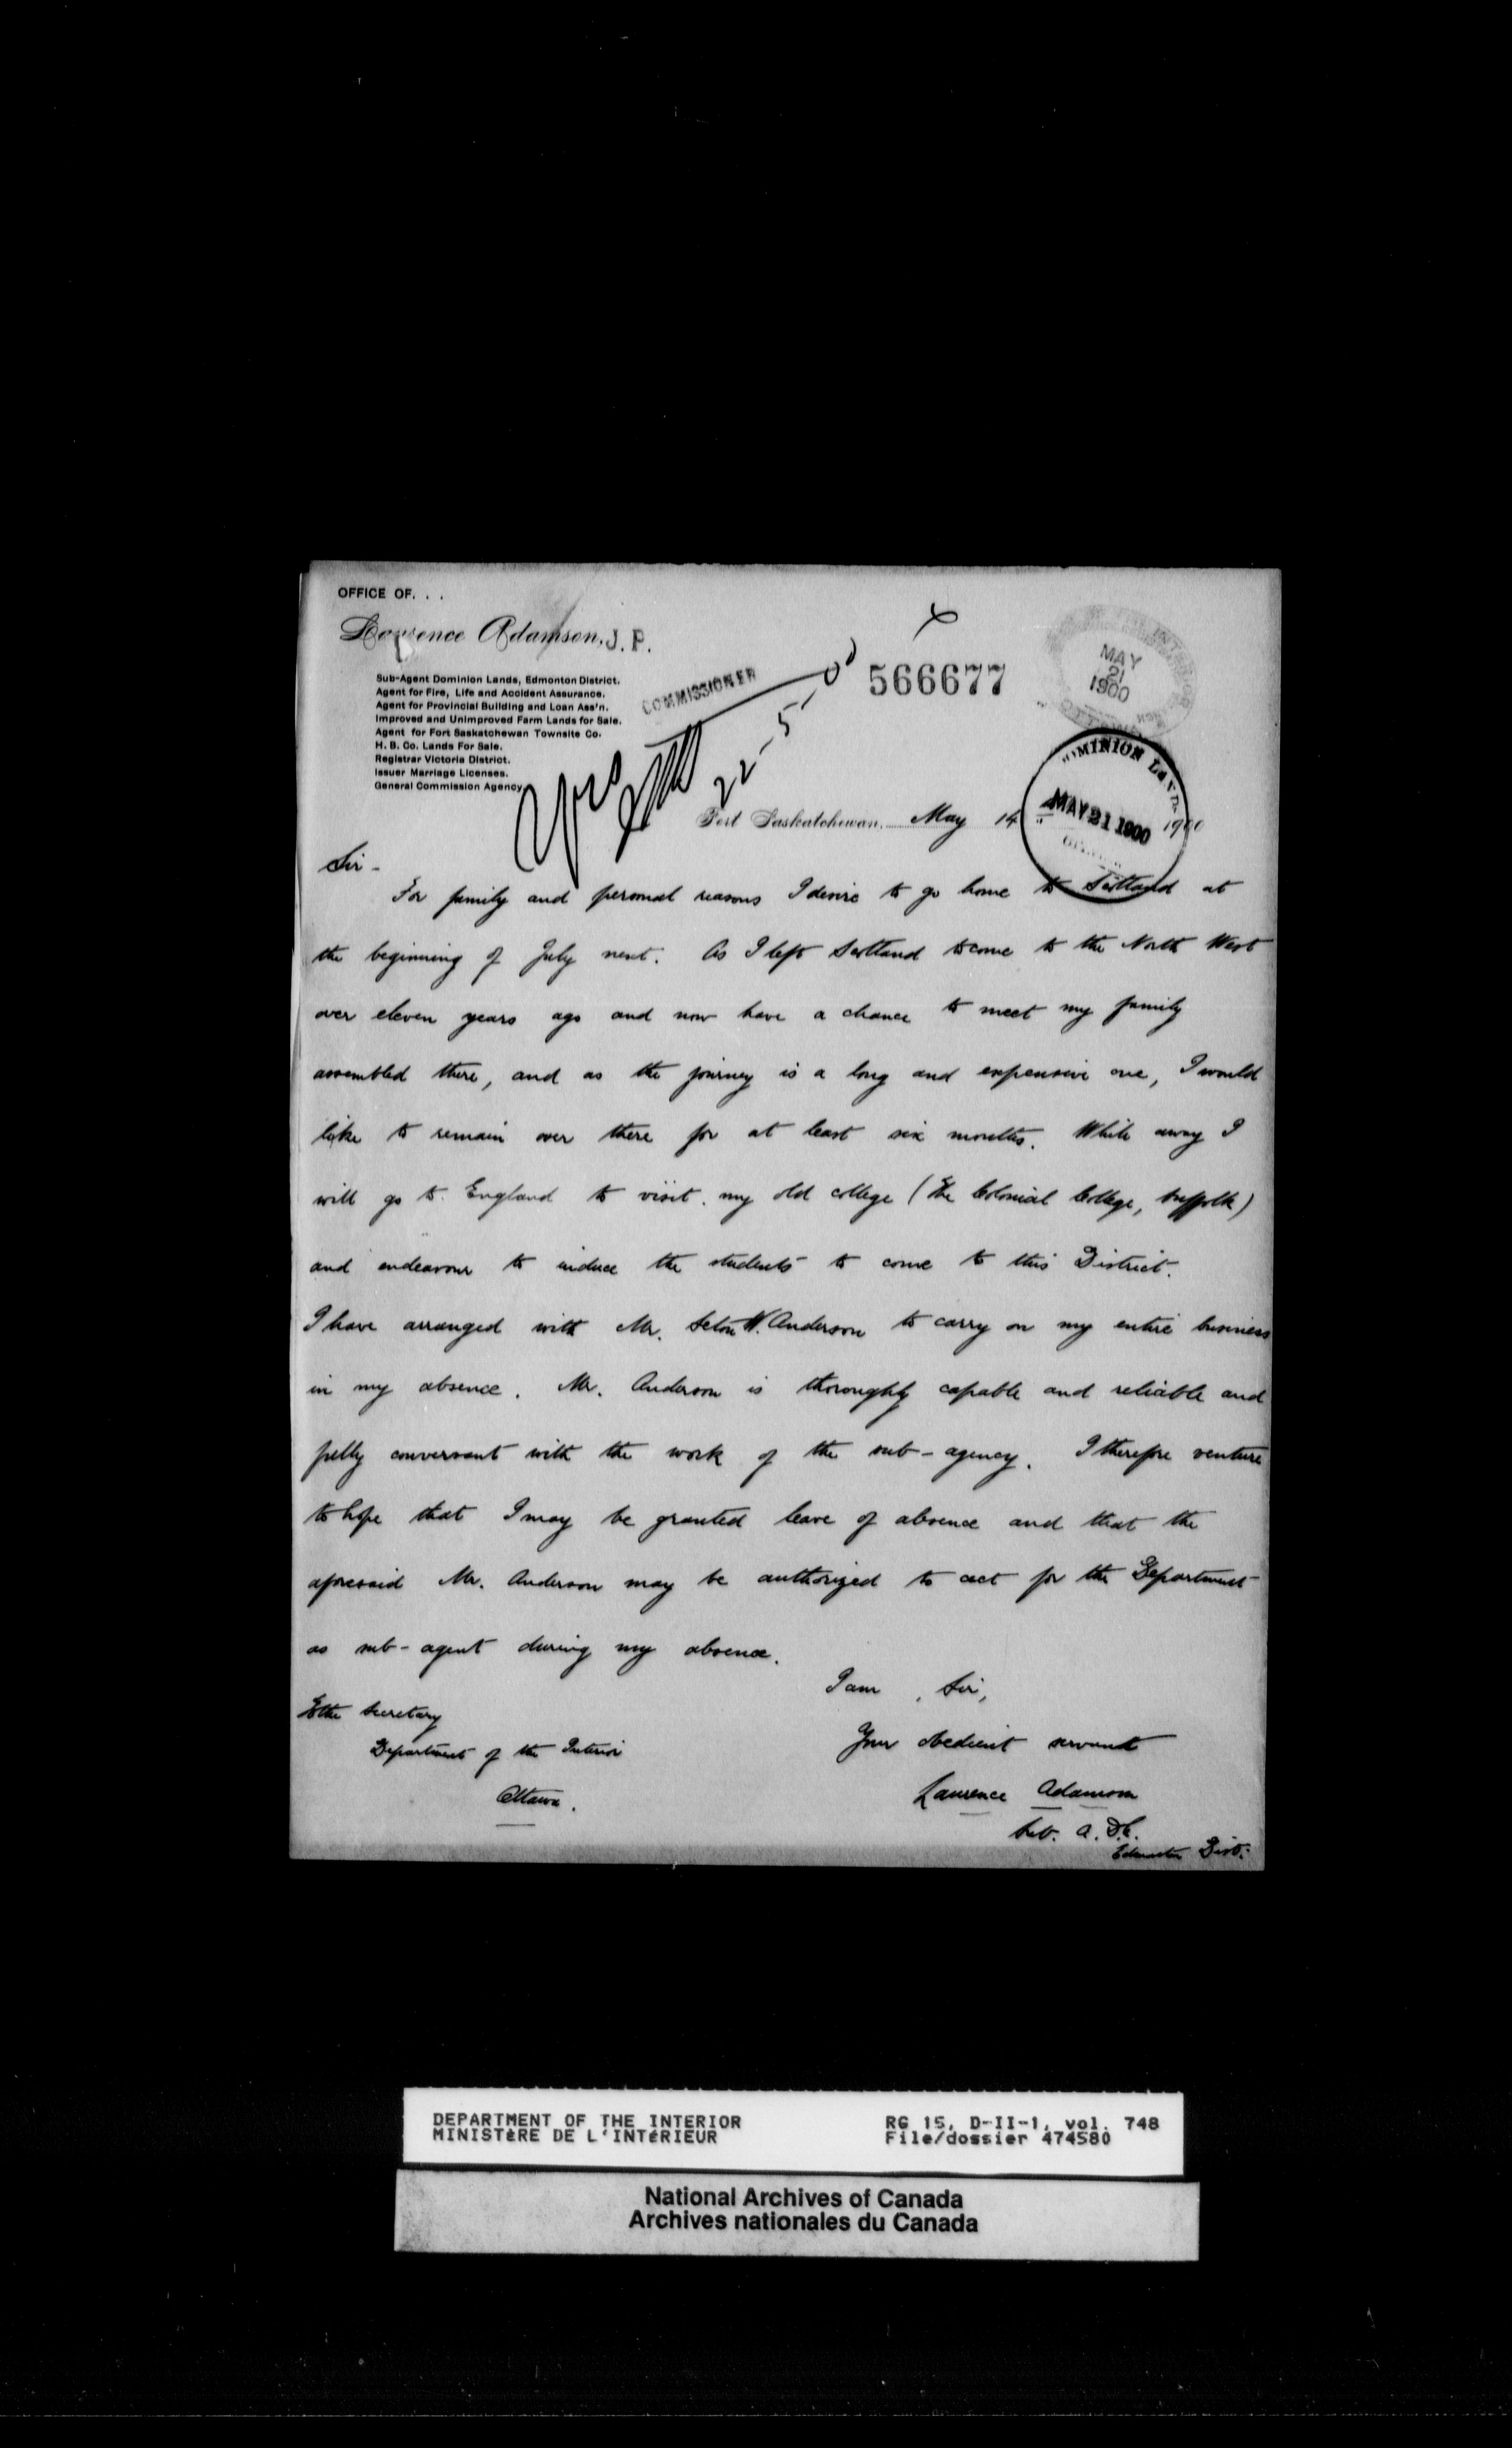 OFFICE OF. . .
Laurence Adamson, J. P.
Sub-Agent Dominion Lands, Edmonton District.
Agent for Fire, Life and Accident Assurance.
Agent for Provincial Building and Loan Ass'n.
Improved and Unimproved Farm Lands for Sale.
Agent for Fort Saskatchewan Townsite Co.
H. B. Co. Lands For Sale.
Registrar Victoria District.
Issuer Marriage Licenses.
General Commission Agency
COMMISSIONER
22-5-00
566677
MAY
21
1900
DOMINION LANDS
MAY 21 1900
Fort Saskatchewan, May 14 1900
Sir -
For family and personal reasons I desire to go home to Scotland at
the beginning of July next. As I left Scotland to come to the North West
over eleven years ago and now have a chance to meet my family
assembled there, and as the journey is a long and expensive one, I would
like to remain over there for at least six months. While away I
will go to England to visit my old college (The Colonial College, Suffolk)
and endeavour to induce the students to come to this District.
I have arranged with Mr. Seton W. Anderson to carry on my entire business
in my absence. Mr. Anderson is thoroughly capable and reliable and
fully conversant with the work of the sub-agency. I therefore venture
to hope that I may be granted leave of absence and that the
aforesaid Mr. Anderson may be authorized to act for the Department
as sub-agent during my absence.
I am, Sir,
Your obedient servant
Laurence Adamson
Sub. A. D.L.
Edmonton Dist.
To the Secretary
Department of the Interior
Ottawa.
DEPARTMENT OF THE INTERIOR
MINISTÈRE DE L'INTÉRIEUR
RG 15, D-II-1, vol. 748
File/dossier 474580
National Archives of Canada
Archives nationales du Canada